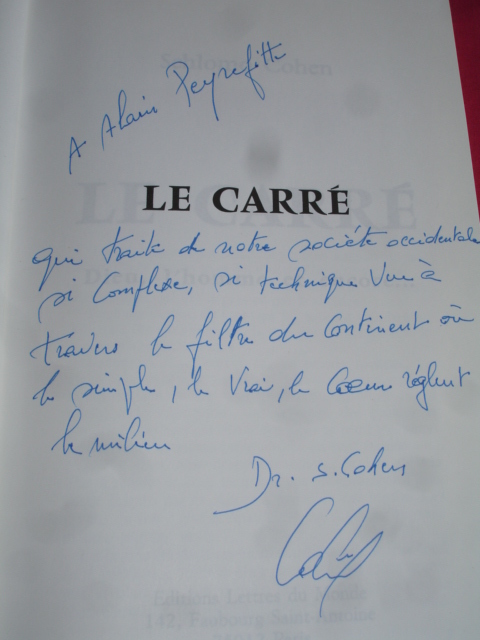 A Alain Peyrefitte
LE CARRÉ
qui traite de notre société occidentale
si complexe, si technique Vue à
travers le filtre du Continent où
le simple, le Vrai, le Coeur règlent
le milieu
Dr. S. Cohen
Editions Lettres du Monde
142, Faubourg Saint-Antoine